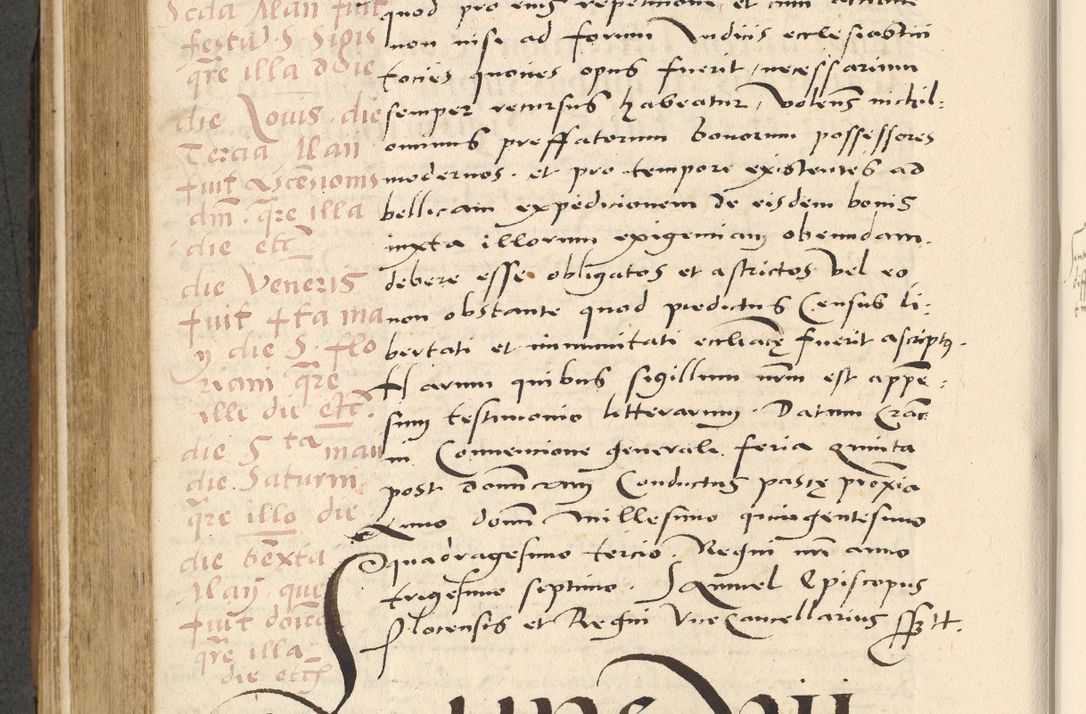 Scda Maii fuit
festu S Sigis
qre illa die
die Iovis die
Tercia Maii
fuit Ascensionis
dni qre illa
die etc
die Veneris
fuit 4ta ma
y die S. Flo
riani qre
illi die etc.
die 5ta maii
die Saturni
qre illo die
die sexta
Maij que
fuit doica
qre illa
die etc
quod pro eius repetitione et cum actione
non nisi ad forum Iudicis ecclesiastici
tocies quocies opus fuerit necessarium
semper recursus habeatur, volens nichil-
ominus preffatorum bonorum possessores
modernos et pro tempore existentes ad
bellicam expedicionem de eisdem bonis
iuxta illorum exigenciam obeundam
debere esse obligatos et astrictos vel eo
non obstante quod predictus Census li-
bertati et immunitati eccliace fuerit ascriptus.
Harum quibus sigillum nrm est appen-
sum testimonio litterarum. Datum Crac
in Conventione generali feria quinta
post domicam Conductus pasce proxia
Anno domi millesimo quingentesimo
Quadragesimo tercio. Regni nri anno
trigesimo septimo. Samuel Episcopus
Plocensis et Regni Vicecancellarius sstt.